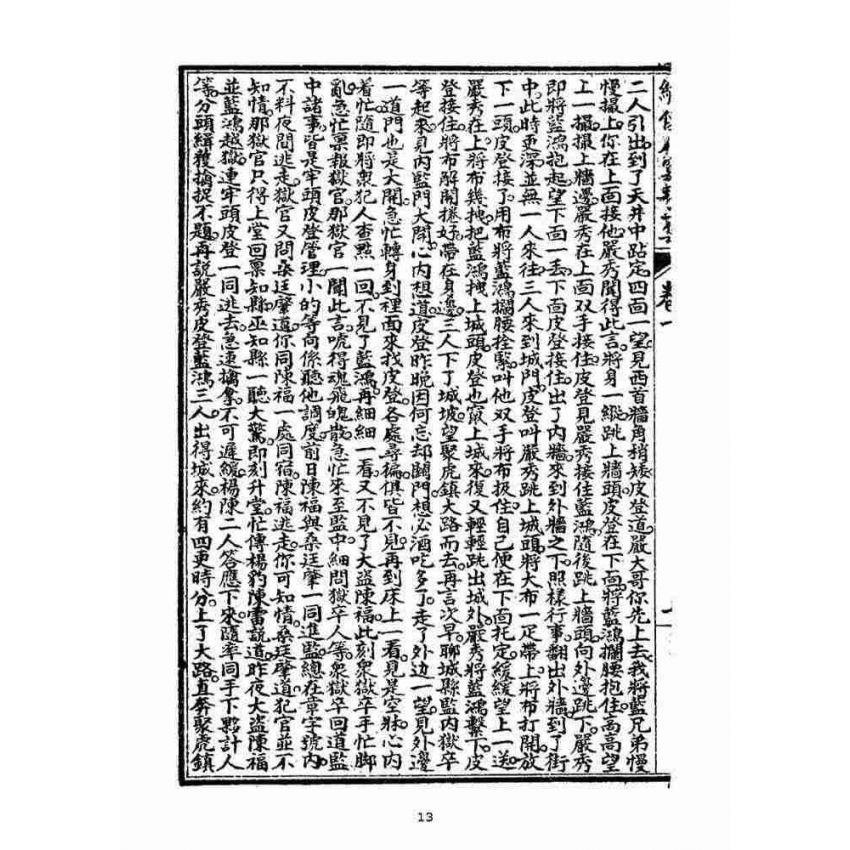 二人引出到了天井中跕定四面一望見西首牆角稍矮皮登道嚴大哥你先上去我將藍兄弟慢
慢撮上你在上面接他嚴秀聞得此言將身一縱跳上牆頭皮登在下面將藍鴻攔腰抱住高高望
上一攝攝上牆邊嚴秀在上面双手接住皮登見嚴秀接住藍鴻隨後跳上牆頭向外邊跳下嚴秀
即將藍鴻抱起望下面一丟下面皮登接住出了內牆來到外牆之下照樣行事翻出外牆到了街
中此時更深並無一人來往三人來到城門皮登叫嚴秀跳上城頭將大布一疋帶上將布打開放
下一頭皮登接了用布將藍鴻攔腰拴緊叫他双手將布扱住自己便在下面托定緩緩望上一送
嚴秀在上將布幾拽把藍鴻拽上城頭皮登也竄上城來復又輕輕跳出城外嚴秀將藍鴻繫下皮
登接住將布解開捲好帶在身邊三人下了城坡望聚虎鎮大路而去再言次早聊城縣監內獄卒
等起來見內監門大開心內想道皮登昨晚因何忘却關門想必酒吃多了走了外边一望見外邊
一道門也是大開急忙轉身到裡面來找皮登各處尋徧俱皆不見再到床上一看見是空牀心內
着忙隨即將衆犯人查點一回不見了藍鴻再細細一看又不見了大盜陳福此刻衆獄卒手忙脚
亂急忙稟報獄官那獄官一聞此言唬得魂飛魄散急忙來至監中細問獄卒人等衆獄卒回道監
中諸事皆是牢頭皮登管理小的等向係聽他調度前日陳福與桑廷肇一同進監總在章字號內
不料夜間逃走獄官又問桑廷肇道你同陳福一處同宿陳福逃走你可知情桑廷肇道犯官並不
知情那獄官只得上堂回稟知縣巫知縣一聽大驚即刻升堂忙傳楊豹陳雷說道昨夜大盜陳福
並藍鴻越獄連牢頭皮登一同逃去急速擒拿不可遲緩楊陳二人答應下來隨率同手下夥計人
等分頭緝獲擒捉不題再說嚴秀皮登藍鴻三人出得城來約有四更時分上了大路直奔聚虎鎮
13